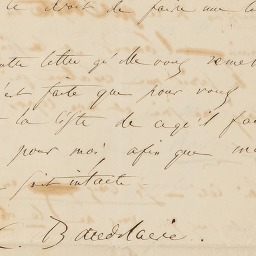 le droit de faire une
cette lettre qu'elle vous remet
n'est faite que pour vous
la liste de ce qu'il fau
pour moi afin que m
soit intacte.
C. Baudelaire.